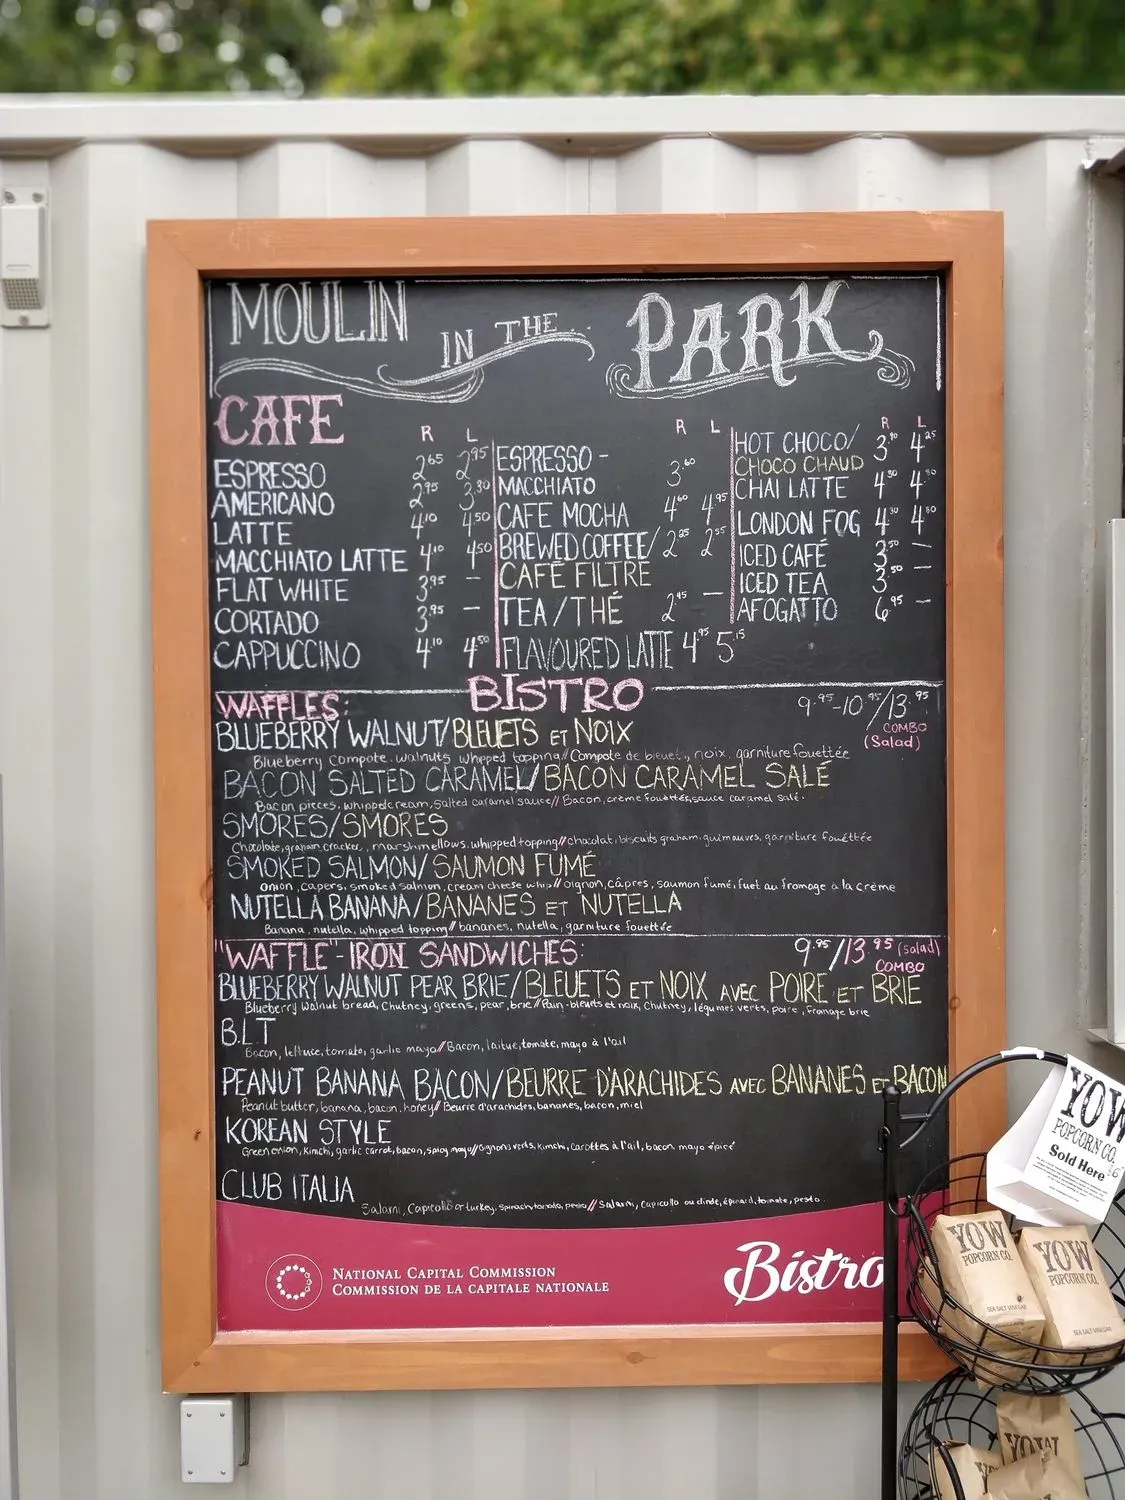 MOULIN IN THE PARK
CAFE
R L
ESPRESSO 2.65 2.95
AMERICANO 2.95 3.30
LATTE 4.10 4.50
MACCHIATO LATTE 4.10 4.50
FLAT WHITE 3.95 —
CORTADO 3.95 —
CAPPUCCINO 4.10 4.50
R L
ESPRESSO -
MACCHIATO 3.60
CAFE MOCHA 4.60 4.95
BREWED COFFEE/ 2.25 2.55
CAFÉ FILTRE
TEA/THÉ 2.45 —
FLAVOURED LATTE 4.75 5.15
R L
HOT CHOCO/ 3.90 4.25
CHOCO CHAUD
CHAI LATTE 4.30 4.80
LONDON FOG 4.30 4.80
ICED CAFÉ 3.50 —
ICED TEA 3.50 —
AFOGATTO 6.95 —
BISTRO
WAFFLES: 9.95-10.95/13.95
COMBO
(Salad)
BLUEBERRY WALNUT/BLEUETS ET NOIX
Blueberry compote, walnuts whipped topping//Compote de bleuets, noix, garniture fouettée
BACON SALTED CARAMEL/BACON CARAMEL SALÉ
Bacon pieces, whipped cream, salted caramel sauce// Bacon, crème fouettée, sauce caramel salé.
SMORES/SMORES
Chocolate, graham cracker, marshmellows, whipped topping//chocolat, biscuits graham, guimauves, garniture fouéttée
SMOKED SALMON/SAUMON FUMÉ
onion, capers, smoked salmon, cream cheese whip// oignon, câpres, saumon fumé, fuet au fromage à la crème
NUTELLA BANANA/BANANES ET NUTELLA
Banana, nutella, whipped topping// bananes, nutella, garniture fouettée
"WAFFLE"-IRON SANDWICHES: 9.95/13.95 (salad)
COMBO
BLUEBERRY WALNUT PEAR BRIE/BLEUETS ET NOIX AVEC POIRE ET BRIE
Blueberry walnut bread, Chutney, greens, pear, brie//Pain-bleuets et noix, Chutney, légumes verts, poire, fromage brie
B.L.T
Bacon, lettuce, tomato, garlic mayo//Bacon, laitue, tomate, mayo à l'ail
PEANUT BANANA BACON/BEURRE D'ARACHIDES AVEC BANANES ET BACON
Peanut butter, banana, bacon, honey// Beurre d'arachides, bananes, bacon, miel
KOREAN STYLE
Green onion, kimchi, garlic carrot, bacon, spicy mayo//oignons verts, kimchi, carottes à l'ail, bacon mayo épicé
CLUB ITALIA
Salami, Capicollo or turkey, spinach tomato, pesto// Salami, capicollo ou dinde, épinard, tomate, pesto.
NATIONAL CAPITAL COMMISSION
COMMISSION DE LA CAPITALE NATIONALE
Bistro
YOW
POPCORN CO.
Sold Here
YOW
POPCORN CO.
SEA SALT VINEGAR
YOW
POPCORN CO.
SEA SALT VINEGAR
YOW